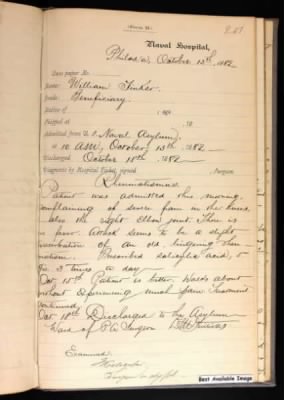 (Form 34)
Naval Hospital,
Philad'a, October 13th, 1882
Case paper No.
Name: William Tinker
Grade: Beneficiary
Native of Age,
Shipped at 18
Admitted from U.S. Naval Asylum,
at 10 A.M., October 13th 1882
Discharged October 18th 1882
Fragments by Hospital Ticket, signed Surgeon.
Rheumatismus
Patient was admitted this morning,
complaining of severe pain in the knees,
also the right elbow joint. There is
no fever. Attack seems to be a slight
of an old, lingering rheu-
matism. Prescribed salicylic acid, 5
grs 3 times a day
Oct. 15th Patient is better. Walks about
without experiencing much pain. Treatment
continued.
Oct. 18th Discharged to the Asylum
Ward of P.A. Surgeon
Examined
Best Available Image